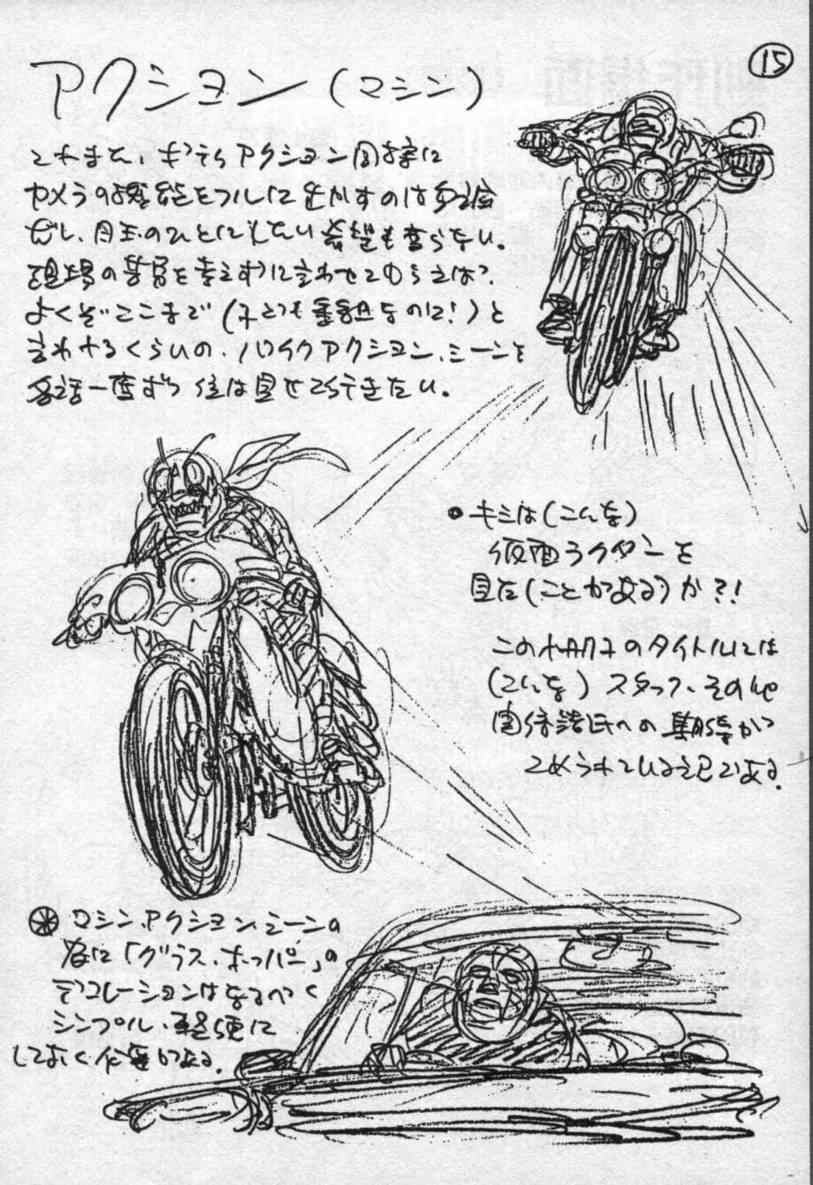 15
アクション（マシン）
これまた、ボディアクション同様に
カメラの機能をフルに生かすのは勿論
だし、目玉のひとにしたい希望も変らない。
現場の苦労を考えずに言わせてもらえば、
よくぞここまで（子ども番組なのに！）と
言わせるくらいの、バイクアクション、シーンを
各話一度ずつ位は見せて行きたい。
・キミは（こんな）
仮面ライダーを
見た（ことがある）か?!
この小冊子のタイトルには
（こんな）スタッフ、その他
関係諸氏への期待が
こめられているのである。
※マシン、アクション、シーンの
為に「グラス、ホッパー」の
デコレーションはなるべく
シンプル、軽便に
しておく必要がある。